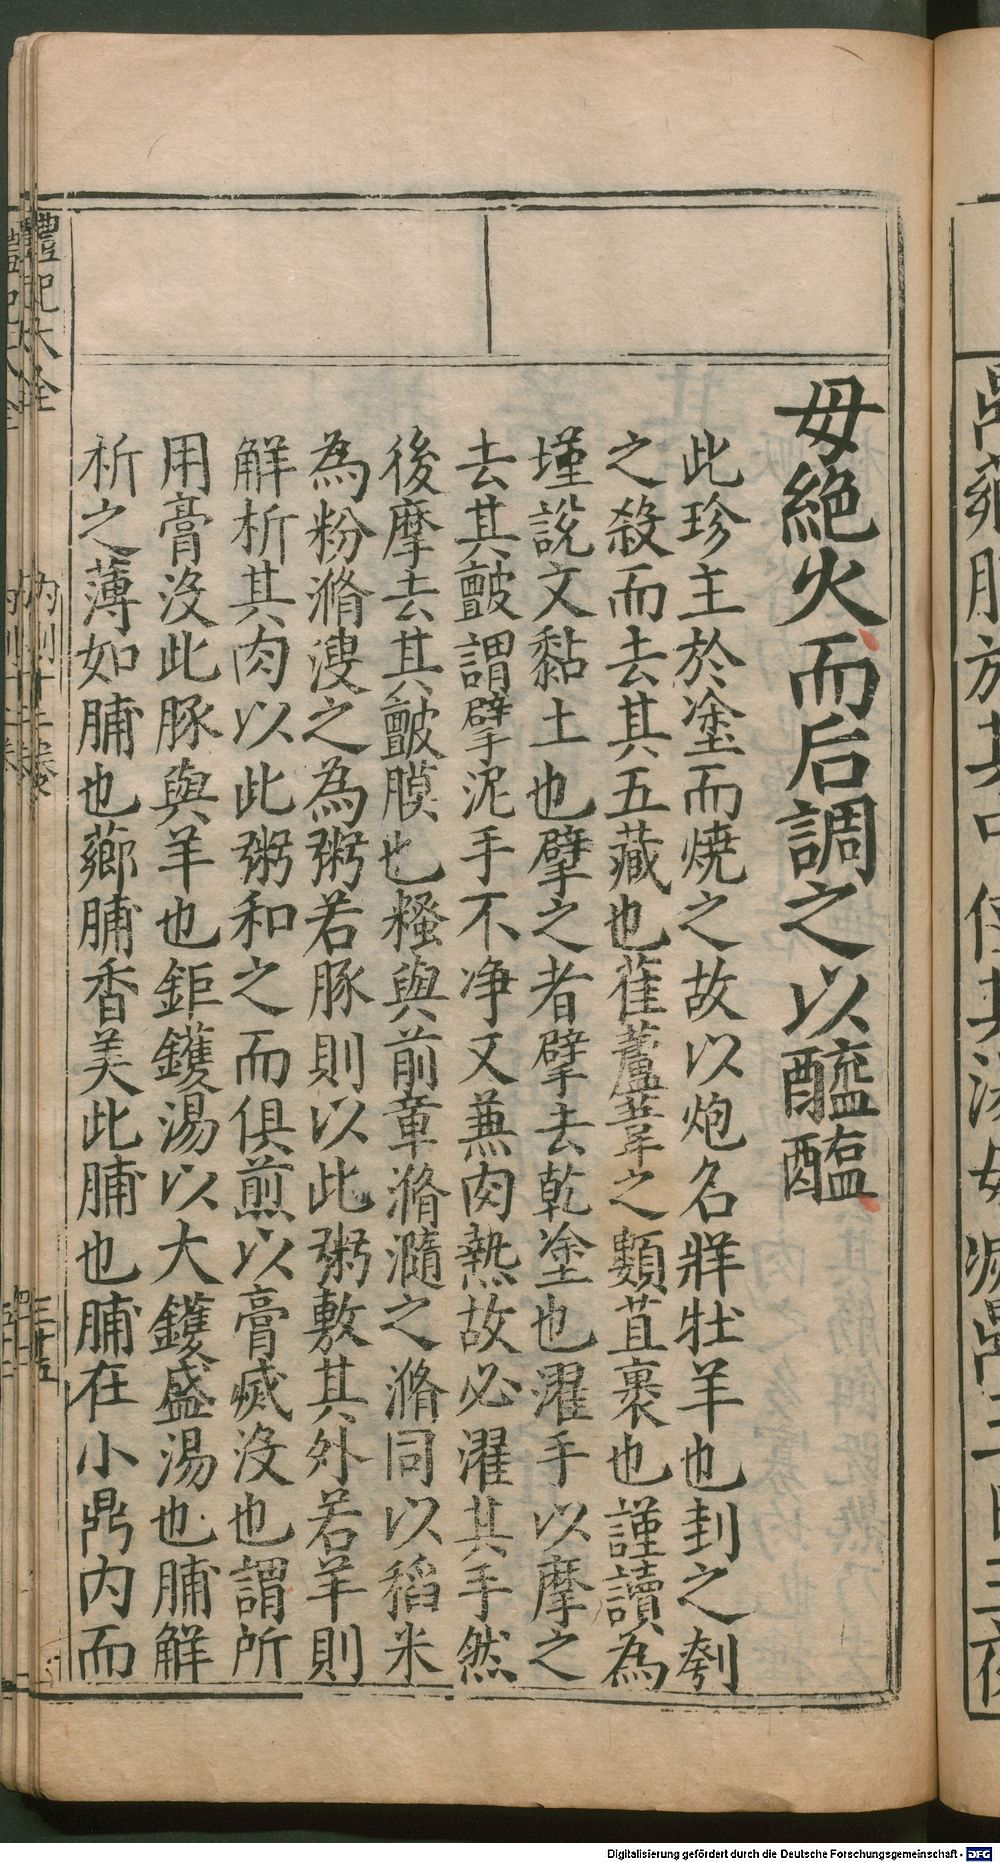 毋絶火而后調之以醯醢
此珍主於塗而燒之故以炮名牂牡羊也刲之刳
之殺而去其五藏也萑蘆葦之類苴裹也謹讀為
墐說文黏土也擘之者擘去乾塗也濯手以摩之
去其皽謂擘泥手不净文兼肉熱故必濯其手然
後摩去其皽膜也糔與前章滫瀡之滫同以稻米
為粉滫溲之為粥若豚則以此粥敷其外若羊則
解析其肉以此粥和之而俱煎以膏烕沒也謂所
用膏沒此豚與羊也鉅鑊湯以大鑊盛湯也脯解
析之薄如脯也薌脯香美此脯也脯在小鼎内而
禮記大全
内則十二卷
三十五
Digitalisierung gefördert durch die Deutsche Forschungsgemeinschaft - DFG